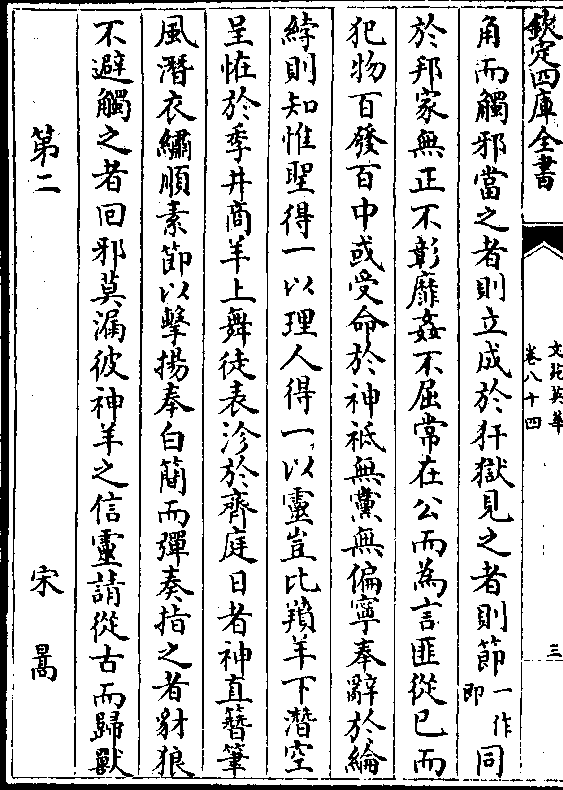 欽定四庫全書
文苑英華
卷八十四
三
角而觸邪當之者則立成於犴獄見之者則節一作即同
於邦家無正不彰靡姦不屈常在公而為言匪從已而
犯物百發百中或受命於神祗無黨無偏寧奉辭於綸
綍則知惟聖得一以理人得一以靈豈比羵羊下潛空
呈恠於季井商羊上舞徒表沴於齊庭日者神直簪筆
風潛衣繡順素節以擊揚奉白簡而彈奏指之者豺狼
不避觸之者回邪莫漏彼神羊之信靈請從古而歸獸
第二 宋暠